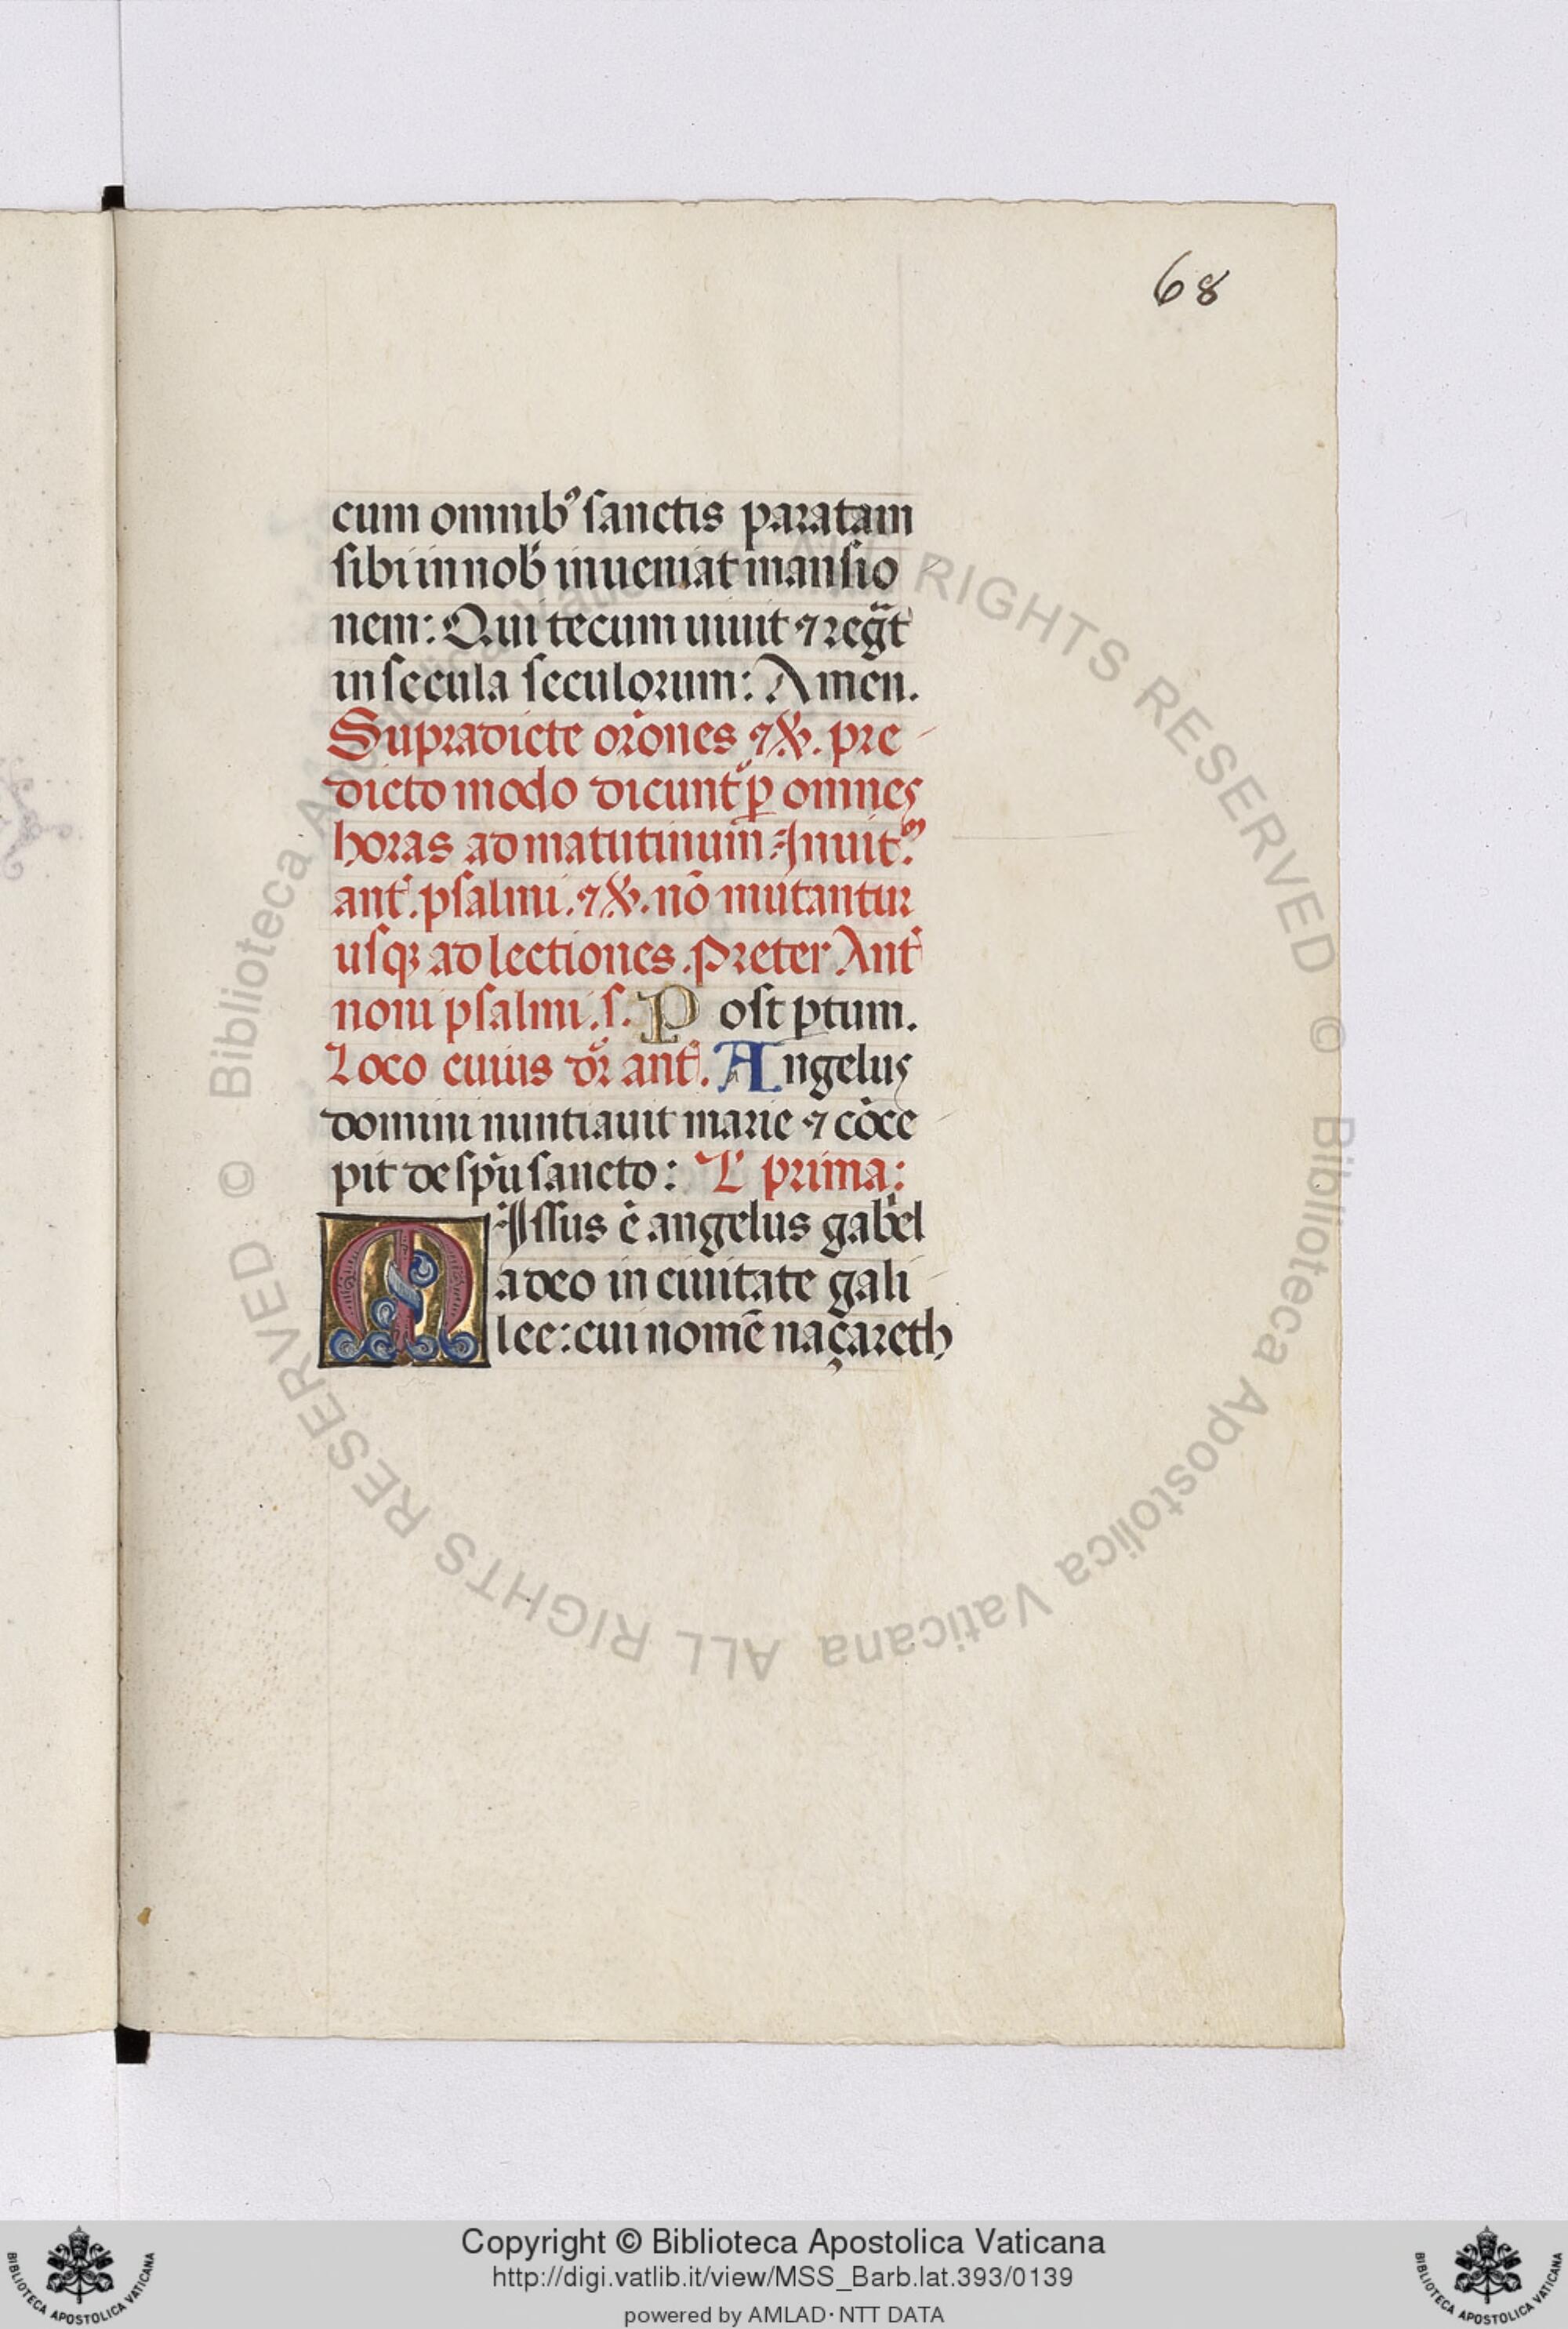 68
cum omnib⁹ sanctis paratam
sibi in nob̄ inueniat mansio
nem: Qui tecum uiuit ⁊ reg̃t
in secula seculorum: Amen.
Supradicte or̄ones ⁊ ℣. pre
dicto modo dicunt᷑ ꝑ omnes
horas ad matutinum. Inuit.ᵐ
ant̄. psalmi. ⁊ ℣. nō mutantur
usqꝫ ad lectiones. Preter Ant̄
noni psalmi .s. Post ꝑtum.
Loco cuius dr̄ ant̄. Angelus
domini nuntiauit marie ⁊ cōce
pit de sp̄u sancto: L̄ prima:
MIssus ē angelus gab̄el
a deo in ciuitate gali
lee: cui nomē naçareth
© Biblioteca Apostolica Vaticana ALL RIGHTS RESERVED
© Biblioteca Apostolica Vaticana ALL RIGHTS RESERVED
Copyright © Biblioteca Apostolica Vaticana
http://digi.vatlib.it/view/MSS_Barb.lat.393/0139
powered by AMLAD·NTT DATA
BIBLIOTECA APOSTOLICA VATICANA
BIBLIOTECA APOSTOLICA VATICANA